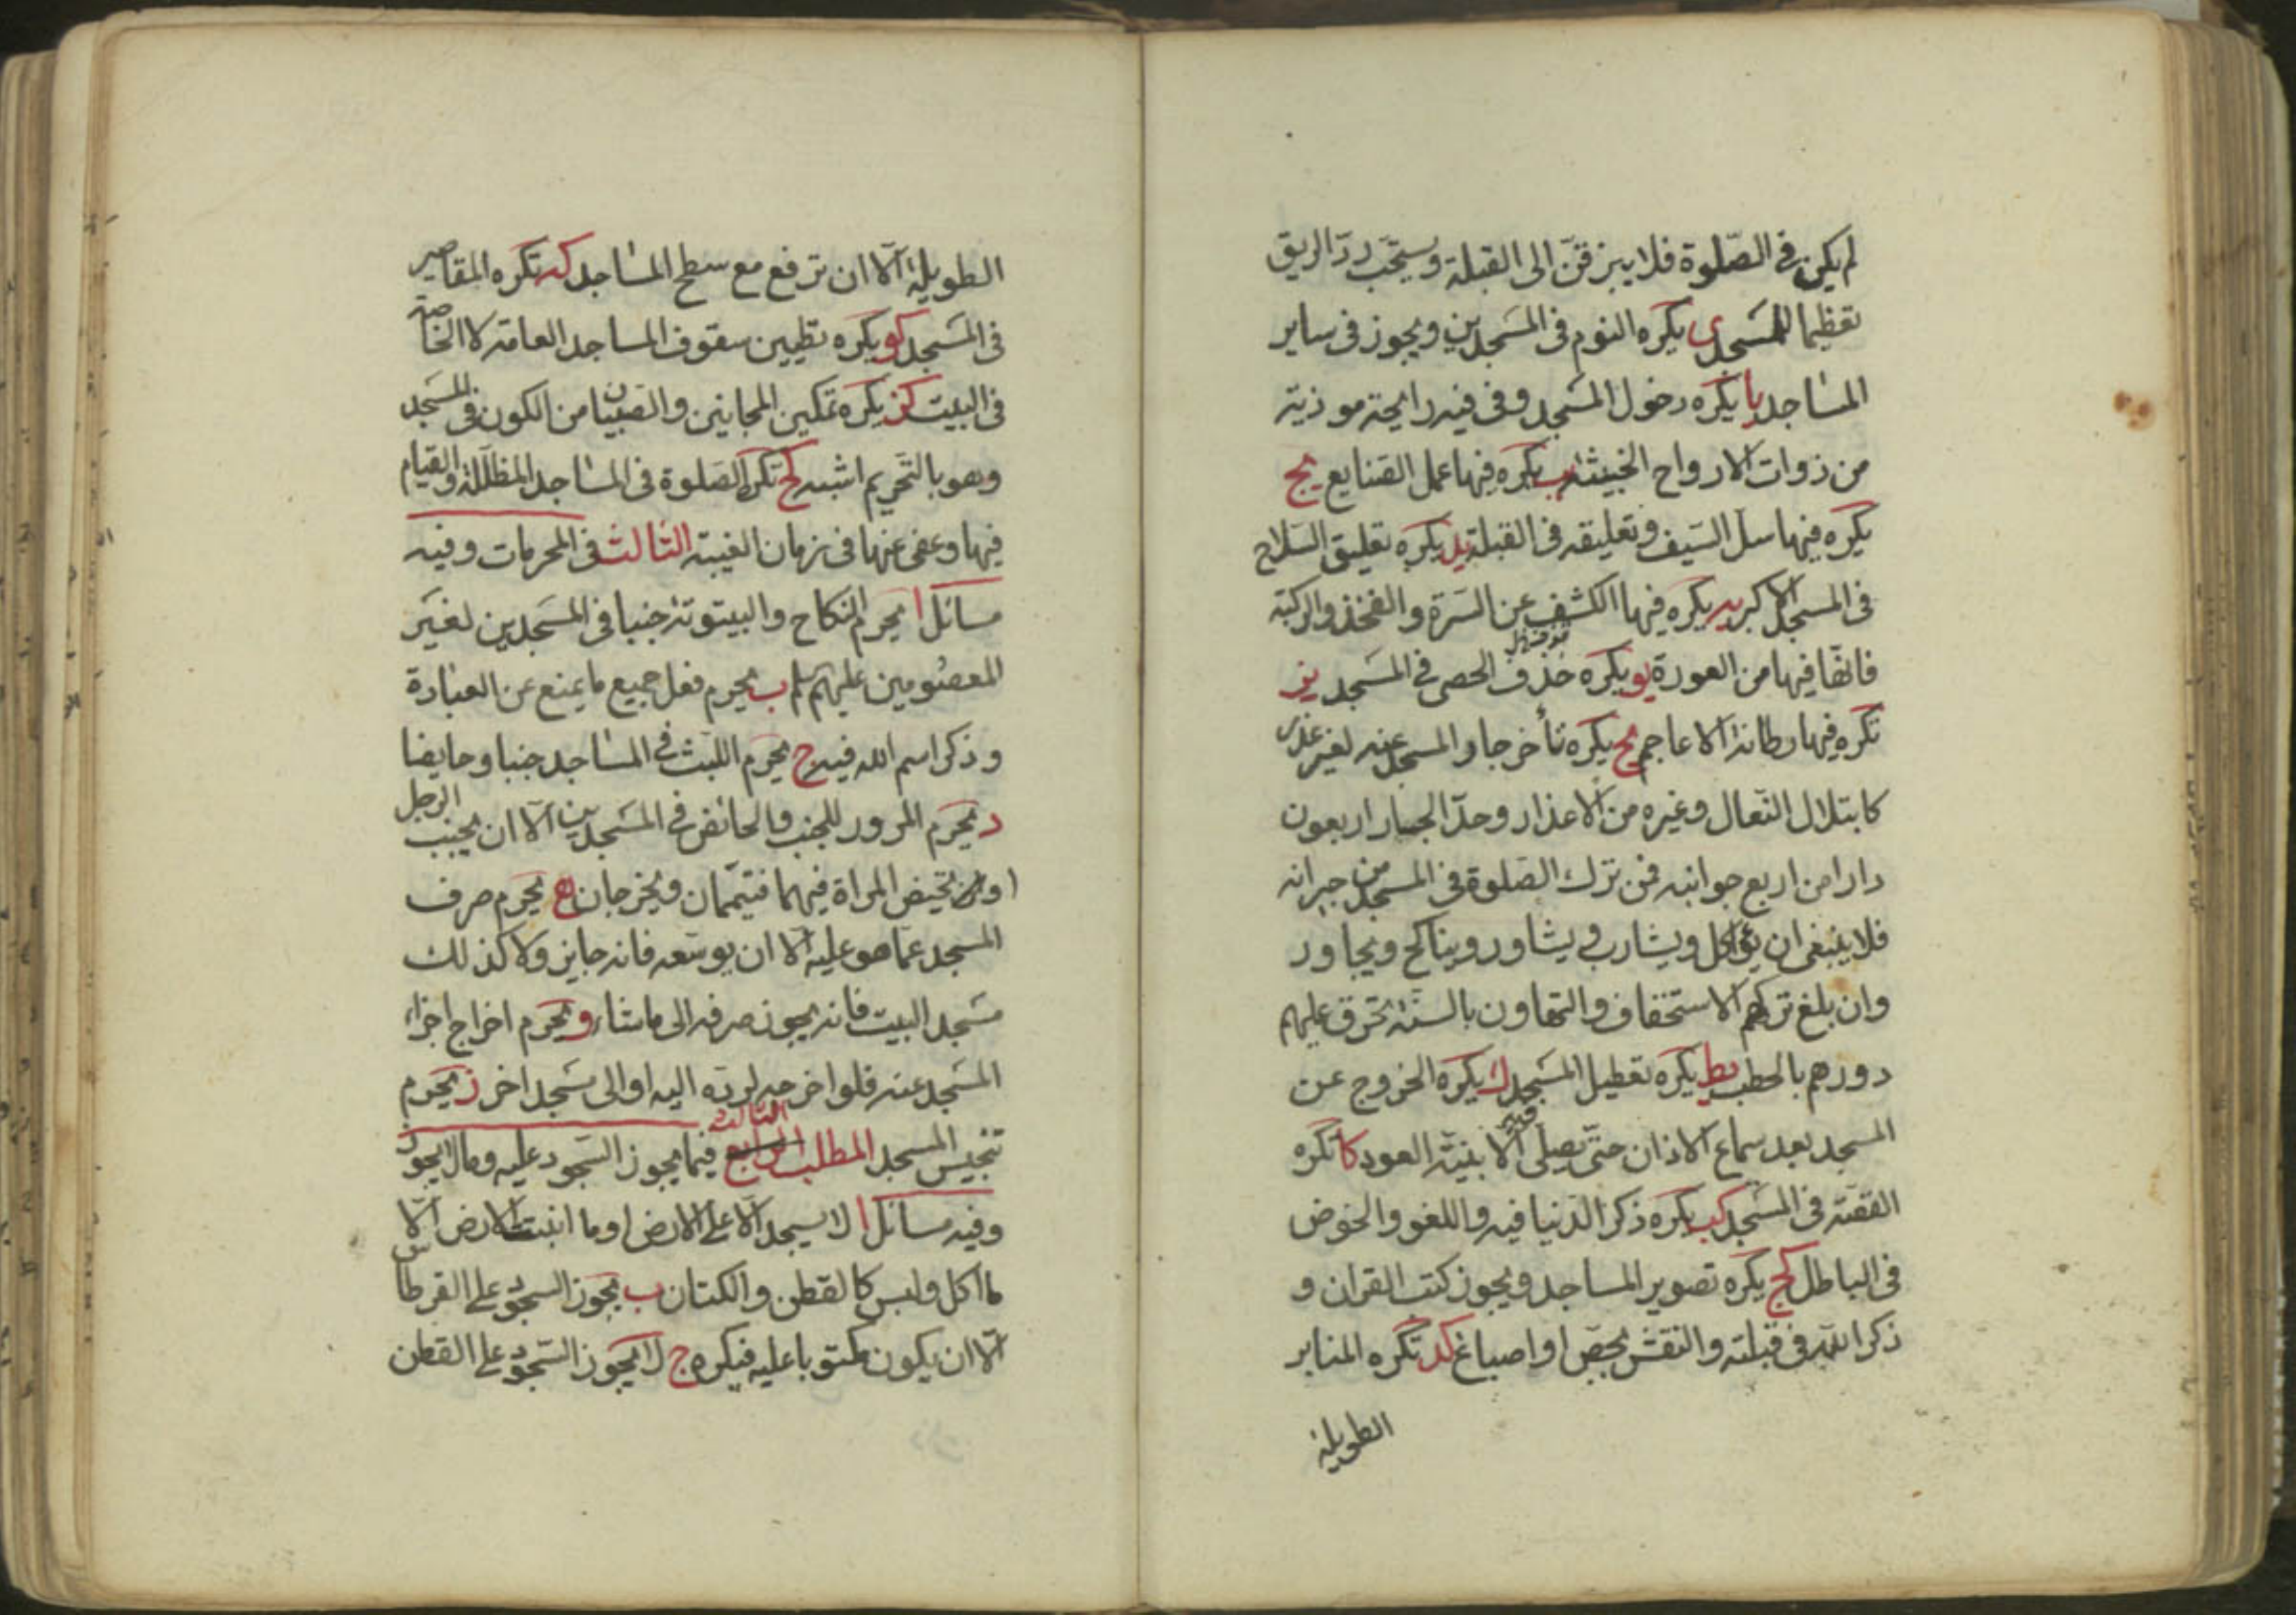 لم يكن فى الصّلوة فلا يبزقنّ الى القبلة ويستحّب ردّ الريق
تعظيما للمسجد ى يكره النوم فى المسجدين ويجوز فى ساير
المساجد يا يكره دخول المسجد وفى فيه رايحة موذية
من ذوات الارواح الخبيثة يب يكره فيها عمل الصنايع يج
يكره فيها سلّ السّيف وتعليقه فى القبلة يد يكره تعليق السّلاح
فى المسجد الاكبر يه يكره فيها الكشف عن السّرة والفخذ والركبة
فانّها فيها من العورة يو يكره خذف الحصى فى المسجد يز
تكره فيها رطانة الاعاجم يح يكره تأخر جار المسجد عنه لغير عذر
كابتلال النّعال وغيره من الاعذار وحدّ الجار اربعون
دارا من اربع جوانبه فمن ترك الصّلوة فى المسجد من جيرانه
فلا ينبغى ان يؤاكل ويشارب ويشاور ويناكح ويجاور
وان بلغ تركهم الاستخفاف والتهاون بالسنّة تحرق عليهم
دورهم بالحطب يط يكره تعطيل المسجد ك يكره الخروج عن
المسجد بعد سماع الاذان حتّى يصلى فيه الا بنيّة العود كا تكره
القصّة فى المسجد كب يكره ذكر الدّنيا فيه واللغو والخوض
فى الباطل كج يكره تصوير المساجد ويجوز كتب القران و
ذكر اللّه فى قبلته والنقش بجصّ او اصباغ كد تكره المنابر
الطويلة
الطويلة الّا ان ترفع مع سطح المساجد كه تكره المقاصير
فى المسجد كو يكره تطيين سقوف المساجد العامة لا الخاصة
فى البيت كز يكره تمكين المجانين والصّبيان من الكون فى المسجد
وهو بالتّحريم اشبه كح تكره الصّلوة فى المساجد المظلّلة والقيام
فيها وعفى عنها فى زمان الغيبة الثالث فى المحرمات وفيه
مسائل ا يحرم النكاح والبيتوتة جنبا فى المسجدين لغير
المعصومين عليهم ب يحرم فعل جميع ما يمنع عن العبادة
وذكر اسم الله فيه ج يحرم اللبث فى المساجد جنبا وحايضا
د يحرم المرور للجنب والحائض فى المسجدين الّا ان يجنب الرجل
او تحيض المراة فيهما فيتيمّمان ويخرجان ه يحرم صرف
المسجد عمّا هو عليه الّا ان يوسّعه فانه جايز ولا كذلك
مسجد البيت فانه يجوز صرفه الى ما شاء و يحرم اخراج اجزاء
المسجد عنه فلو اخرجه لردّه اليه او الى مسجد اخر ز يحرم
تنجيس المسجد المطلب الرابع الثالث فيما يجوز السّجود عليه وما لا يجوز
وفيه مسائل ا لا يسجد الّا على الارض او ما انبتته الارض الّا
ما اكل ولبس كالقطن والكتان ب يجوز السجود على القرطاس
الّا ان يكون مكتوبا عليه فيكره ج لا يجوز السّجود على القطن